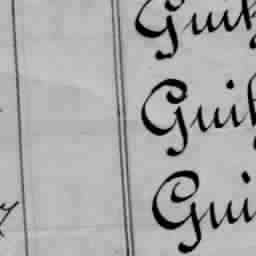 Guil
Guil
Gui